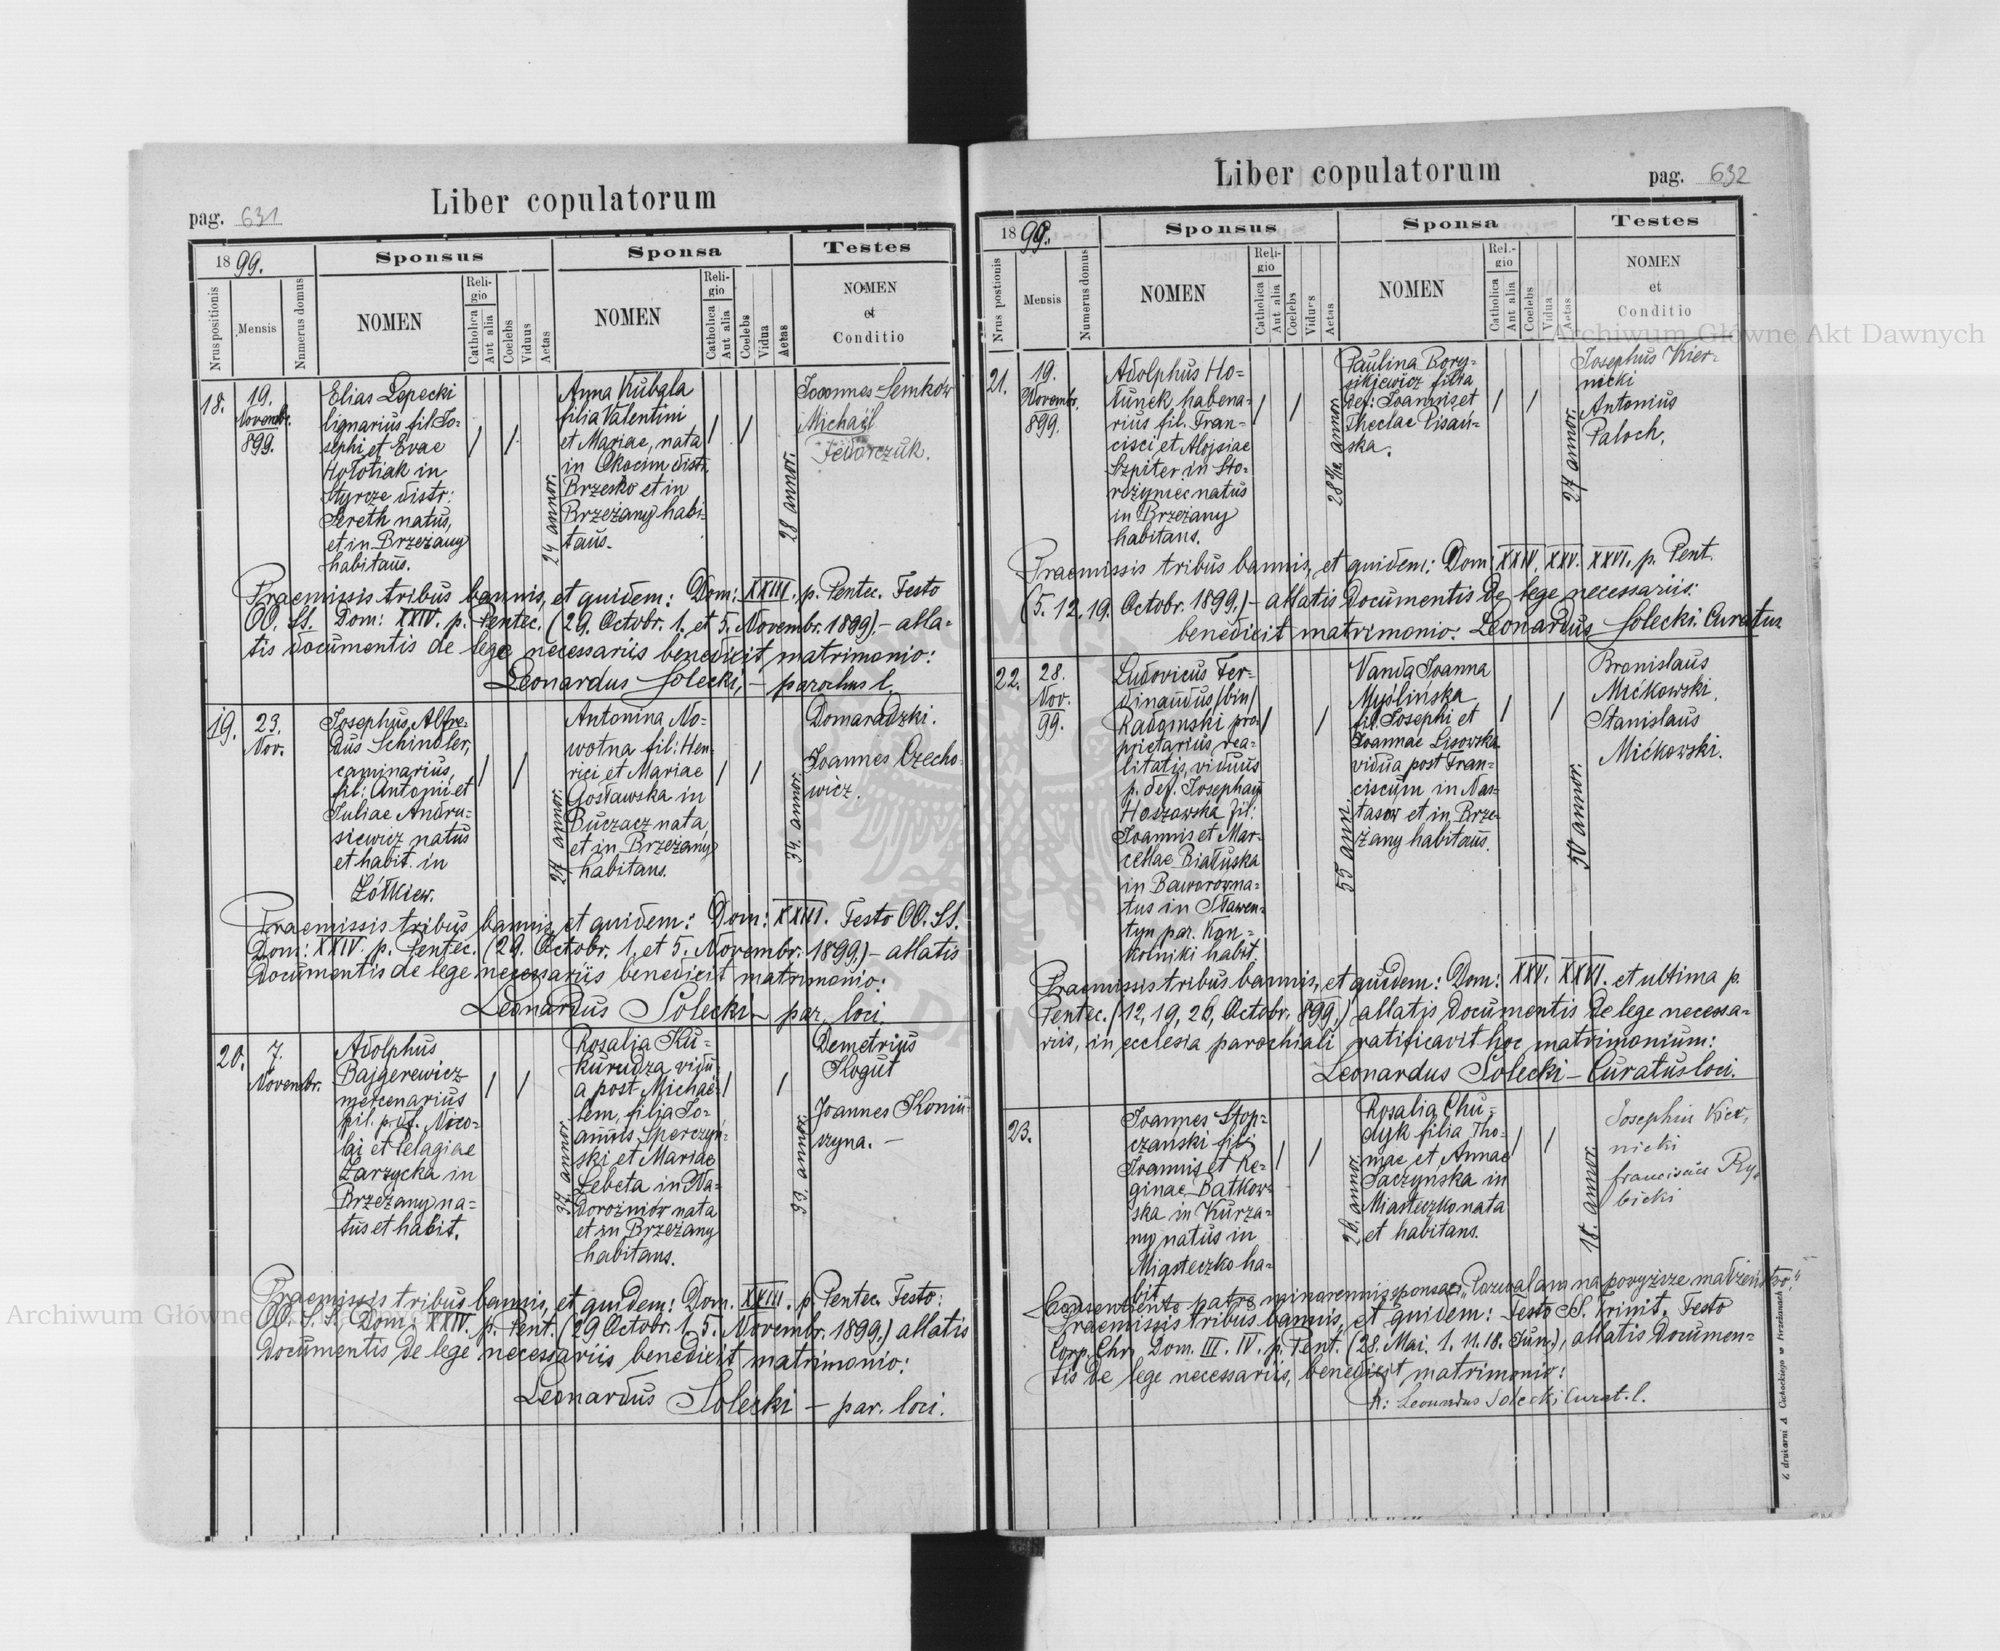 Liber copulatorum
pag. 631
1899.
Sponsus
Sponsa
Testes
Nrus positionis
Mensis
Numerus domus
NOMEN
Religio
Catholica
Aut alia
Coelebs
Viduus
Aetas
NOMEN
Religio
Catholica
Aut alia
Coelebs
Vidua
Aetas
NOMEN
et
Conditio
18.
19.
Novembr.
899.
Elias Lepecki
lignarius fil. Jo-
sephi et Evae
Hołotiak in
Styrcze distr:
Sereth natus,
et in Brzeżany
habitaus.
24 annor.
Anna Kubala
filia Valentini
et Mariae, nata
in Okocim distr.
Brzesko et in
Brzeżany habi-
taus.
28 annor.
Joannes Semków
Michaël
Fedorczuk.
Praemissis tribus bannis, et quidem: Dom: XXIII. p. Pentec. Festo
OO. SS. Dom: XXIV. p. Pentec. (29. Octobr. 1. et 5. Novembr. 1899.) – alla-
tis documentis de lege necessariis benedicit matrimonio:
Leonardus Solecki, – parochus l.
19.
23.
Nov.
Josephus, Alfre-
dus Schindler,
caminarius,
fil: Antoni et
Juliae Andru-
siewicz natus
et habit. in
Żółkiew.
27 annor.
Antonina No-
wotna fil: Hen-
rici et Mariae
Gosławska in
Buczacz nata
et in Brzeżany
habitans.
34. annor.
Domaradzki.
Joannes Czecho-
wicz.
Praemissis tribus bannis et quidem: Dom: XXIII. Festo OO. SS.
Dom: XXIV. p. Pentec. (29. Octobr. 1. et 5. Novembr. 1899.) – allatis
documentis de lege necessariis benedicit matrimonio:
Leonardus Solecki – par. loci.
20.
7.
Novembr.
Adolphus
Bajgerewicz
mercenarius
fil. p. def. Nico-
lai et Pelagiae
Zarzycka in
Brzeżany na-
tus et habit.
37 annor.
Rosalia Ku-
kurudza vidu-
a post Michaë-
lem, filia Jo-
annis Sperczyń-
ski et Mariae
Lebeta in Na-
dorożniów nata
et in Brzeżany
habitans.
33. annor.
Demetrius
Kogut
Joannes Koniu-
szyna. –
Praemissis tribus bannis, et quidem: Dom. XXIII. p. Pentec. Festo:
OO. S. S. Dom: XXIV. p. Pent. (29 Octobr. 1. 5. Novembr. 1899.) allatis
documentis de lege necessariis benedicit matrimonio:
Leonardus Solecki – par. loci.
Liber copulatorum
pag. 632
1899.
Sponsus
Sponsa
Testes
Nrus postionis
Mensis
Numerus domus
NOMEN
Religio
Catholica
Aut alia
Coelebs
Viduus
Aetas
NOMEN
Religio
Catholica
Aut alia
Coelebs
Vidua
Aetas
NOMEN
et
Conditio
21.
19.
Novembr.
899.
Adolphus Ho-
lunek habena-
rius fil. Fran-
cisci et Alojsiae
Szpiter in Sto-
rożyniec natus
in Brzeżany
habitans.
annor.
Paulina Bory-
sikjewicz filia
def: Joannis et
Theclae Pisań-
ska.
27 annor.
Josephus Kier-
nicki
Antonius
Paloch.
Praemissis tribus bannis, et quidem: Dom: XXIV. XXV. XXVI. p. Pent.
(5. 12. 19. Octobr. 1899.) – allatis documentis de lege necessariis:
benedicit matrimonio: Leonardus Solecki. Curatus
22.
28.
Nov.
99.
Ludovicus Fer-
dinandus (bin)
Radomski pro-
prietarius rea-
litatis, viduus
p. def. Josepham
Hoszowska fil:
Joannis et Mar-
cellae Białuska
in Baworów na-
tus in Sławen-
tyn par. Kon-
kolniki habit.
55 ann.
Vanda Joanna
Myślińska
fil. Josephi et
Joannae Lisowska
vidua post Fran-
ciscum in Nas-
tasow et in Brze-
żany habitaus.
50 annor.
Bronislaus
Mićkowski.
Stanislaus
Mićkowski.
Praemissis tribus bannis, et quidem: Dom: XXV. XXVI. et ultima p.
Pentec. (12, 19, 26, Octobr. 899.) allatis documentis de lege necessa-
riis, in ecclesia parochiali ratificavit hoc matrimonium:
Leonardus Solecki – Curatus loci.
23.
Joannes Stop-
czanski fil:
Joannis et Re-
ginae Batkow-
ska in Kurza-
ny natus in
Miasteczko ha-
bit
26. annor.
Rosalia Chu-
dyk filia Tho-
mae et Annae
Saczynska in
Miasteczko nata
et habitans.
18. annor.
Josephus Kier-
nicki
Franciscus Ry-
bicki
Consentiente patre minorennis sponsae: „Pozwalam na powyższe małżeństwo"
Praemissis tribus bannis, et quidem: Festo SS. Trinit. Festo
Corp. Chr. Dom. III. IV. p. Pent. (28. Mai. 1. 11. 18. Jun.), allatis documen-
tis de lege necessariis, benedixit matrimonio:
Leonardus Solecki Curat. l.
Z drukarni A Cichockiego w Brzeżanach
Archiwum Główne Akt Dawnych
Archiwum Główne